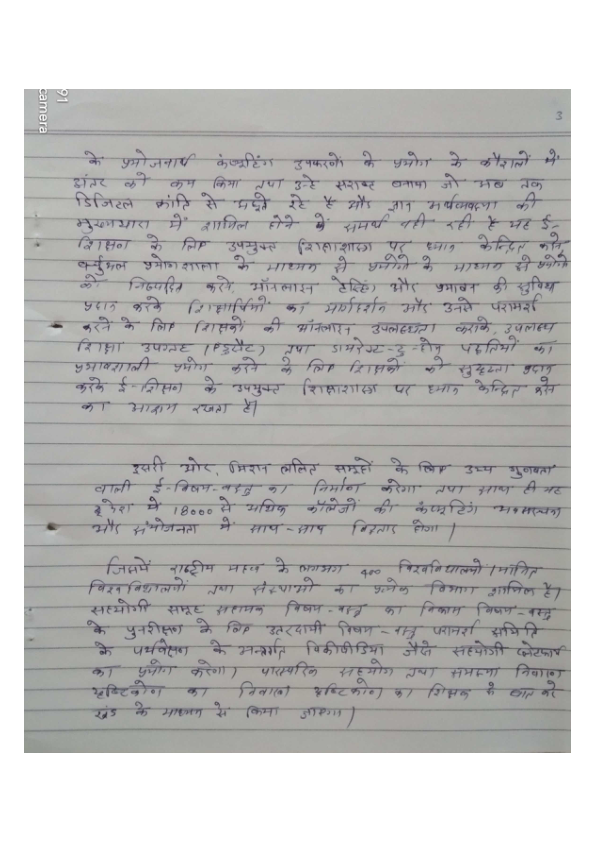 91
camera
3
के प्रयोजनार्थ कंप्यूटिंग उपकरणों के प्रयोग के कौशलों में
अंतर को कम किया तथा उन्हे सशक्त बनाया जो अब तक
डिजिटल क्रांति से अछूते रहे है और ज्ञान अर्थव्यवस्था की
मुख्यधारा में शामिल होने में समर्थ नही रही है यह ई-
शिक्षण के लिए उपयुक्त शिक्षाशास्त्र पर ध्यान केन्द्रित करने
वर्चुअल प्रयोगशाला के माध्यम से प्रयोगो के माध्यम से प्रयोगो
को निष्पादित करने, ऑनलाइन टेस्टिंग और प्रमाणन की सुविधा
प्रदान करके शिक्षार्थियों का मार्गदर्शन और उनसे परामर्श
करने के लिए शिक्षको की ऑनलाइन उपलब्धता कराके, उपलब्ध
शिक्षा उपग्रह (एडुसैट) तथा डायरेक्ट-टु-होम पद्धतियों का
प्रभावशाली प्रयोग करने के लिए शिक्षकों को सुदृढ़ता प्रदान
करके ई-शिक्षण के उपयुक्त शिक्षाशास्त्र पर ध्यान केन्द्रित करने
का आशय रखता है।
दूसरी ओर, मिशन लक्षित समूहों के लिए उच्च गुणवत्ता
वाली ई-विषय-वस्तु का निर्माण करेगा तथा साथ ही यह
देश में 18000 से अधिक कॉलेजों की कंप्यूटिंग अवसंरचना
और संयोजनता में साथ-साथ विस्तार होगा।
जिसमें राष्ट्रीय महत्व के लगभग 400 विश्वविद्यालयो/मानित
विश्वविद्यालयों तथा संस्थाओ का प्रत्येक विभाग शामिल है।
सहयोगी समूह सहायक विषय-वस्तु का विकास विषय-वस्तु
के पुनरीक्षण के लिए उत्तरदायी विषय-वस्तु परामर्श समिति
के पर्यवेक्षण के अन्तर्गत विकीपीडिया जैसे सहयोगी प्लेटफार्म
का प्रयोग करेगा। पारस्परिक सहयोग तथा समस्या निवारण
दृष्टिकोण का निवारण दृष्टिकोण का शिक्षक से बात करे
खंड के माध्यम से किया जाएगा।